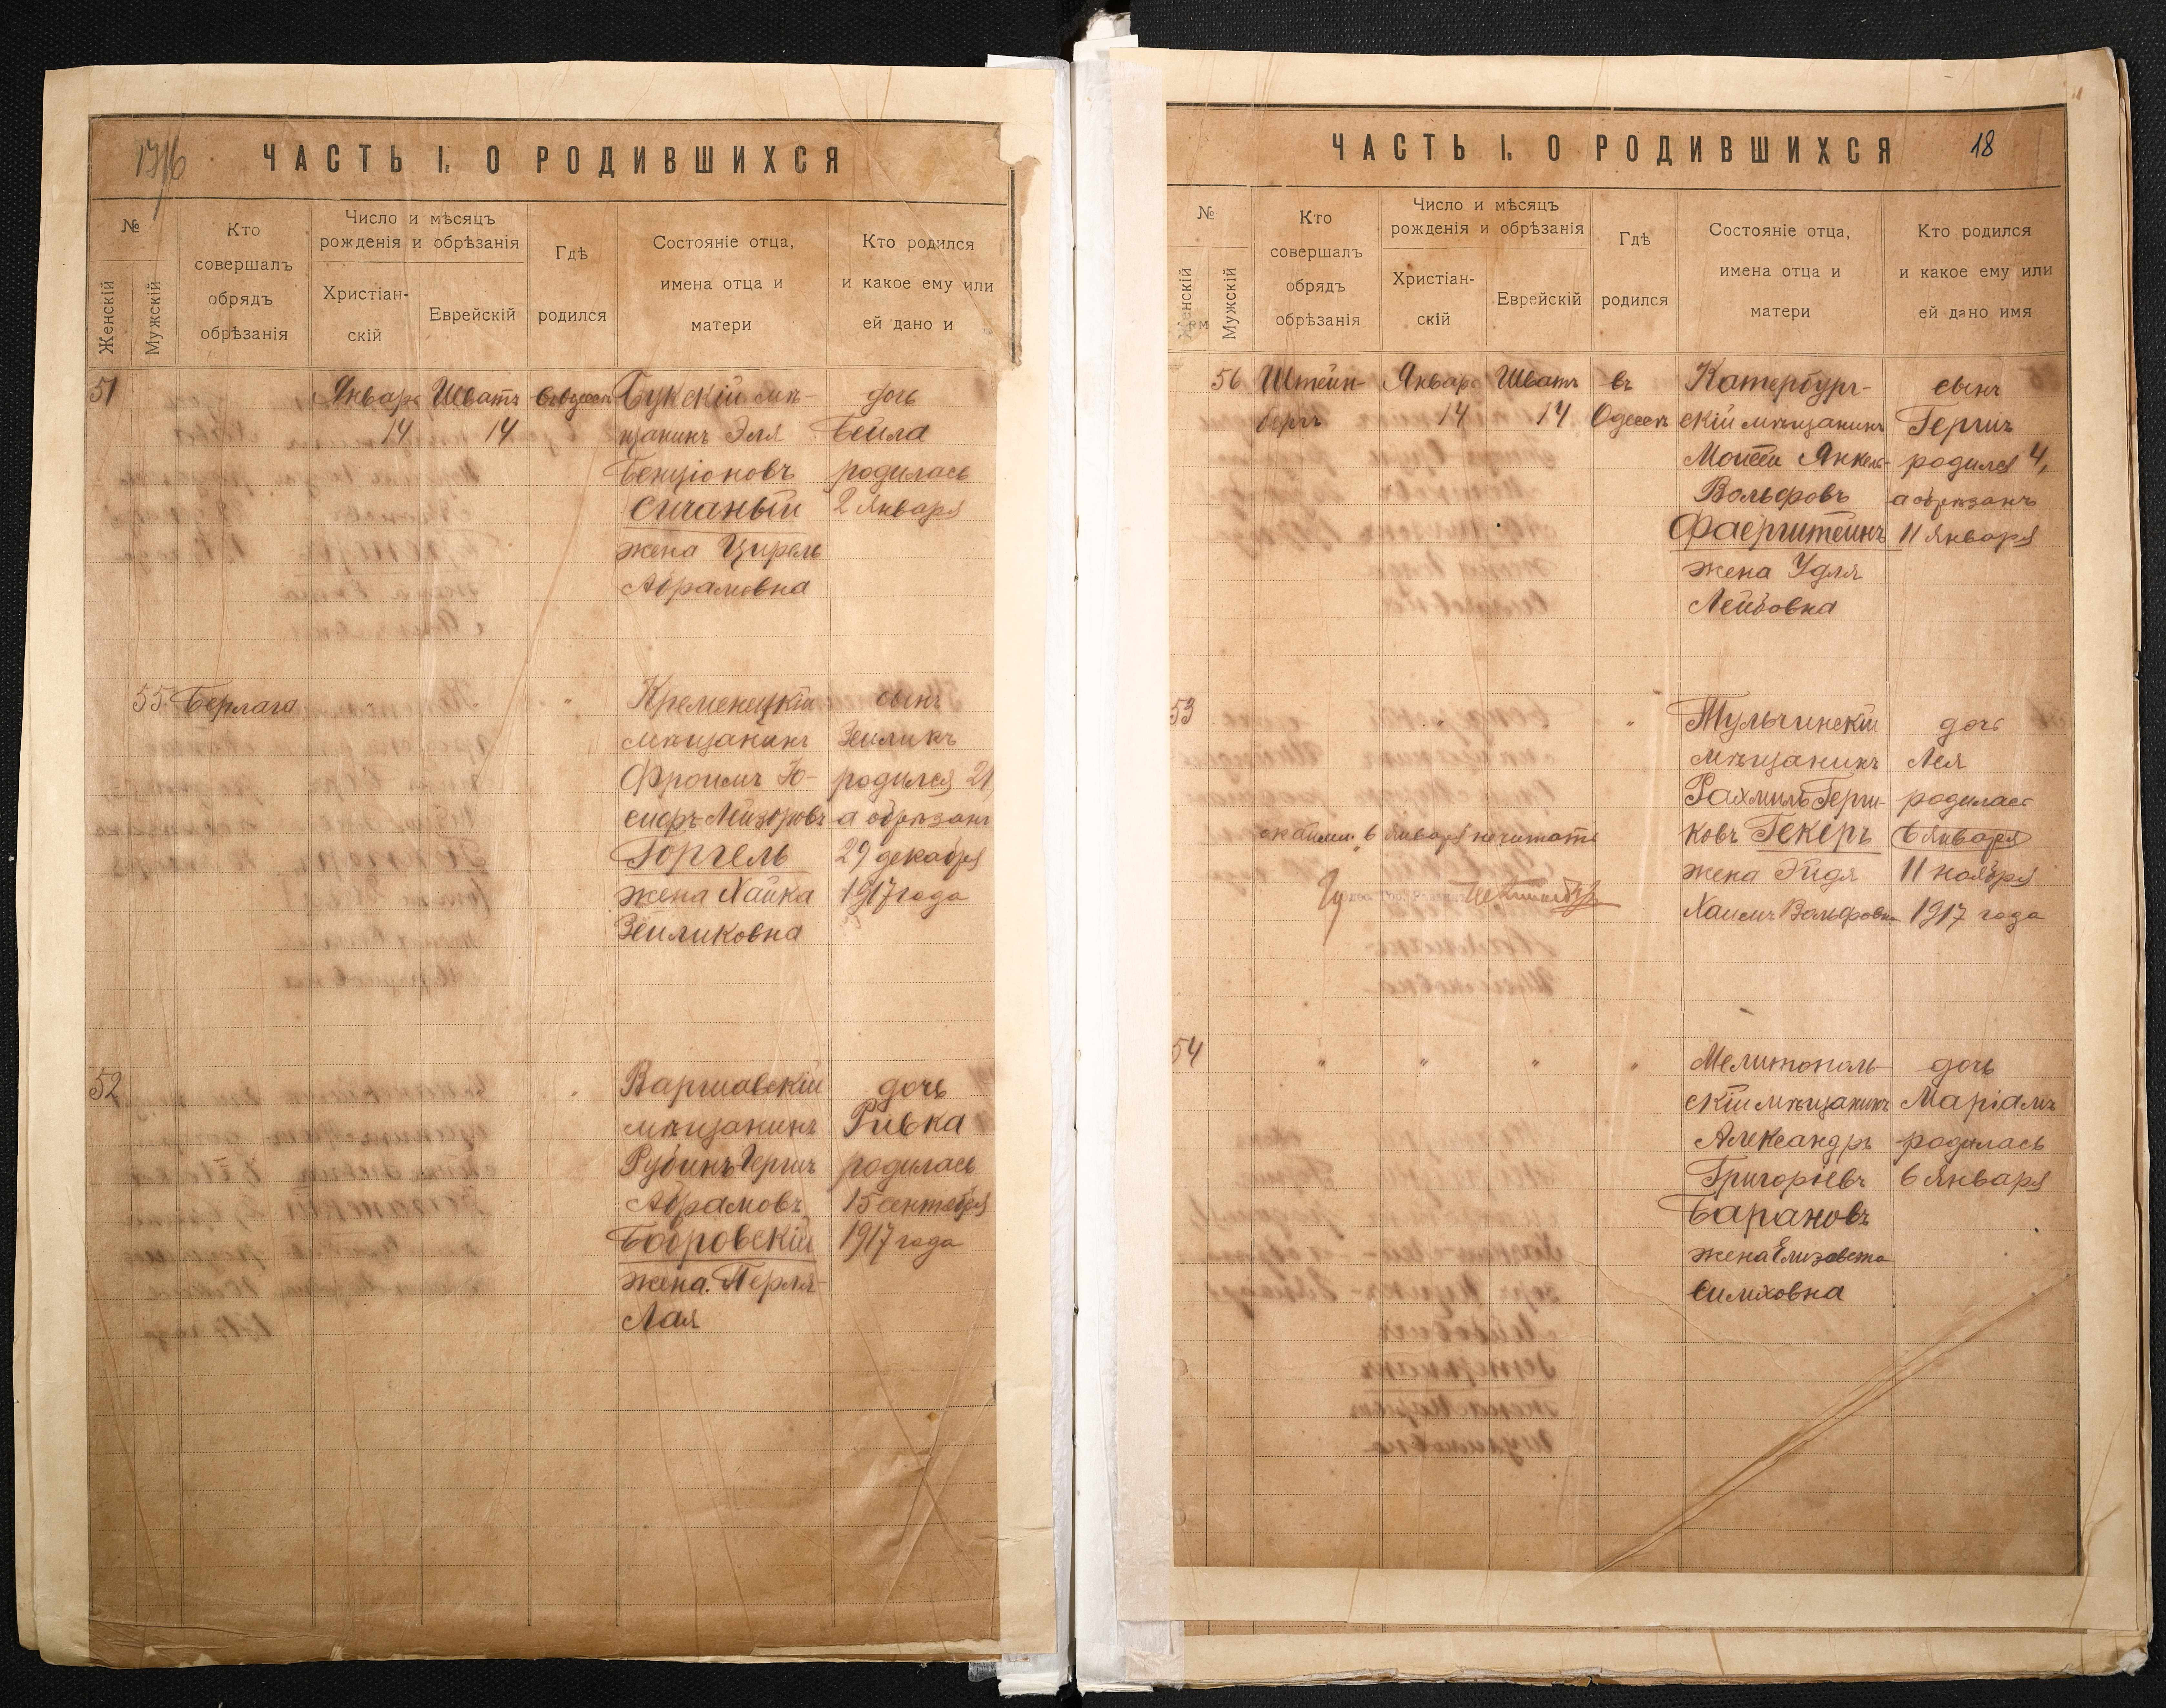 ЧАСТЬ I. О РОДИВШИХСЯ
№
Женскій
Мужскій
Кто
совершалъ
обрядъ
обрѣзанія
Число и мѣсяцъ
рожденія и обрѣзанія
Христіан-
скій
Еврейскій
Гдѣ
родился
Состояніе отца,
имена отца и
матери
Кто родился
и какое ему или
ей дано и
51
Январь
14
Шватъ
14
Букскій мѣ-
щанинъ Эля
Бенціоновъ
жена Цирель
Абрамовна
дочь
Бейла
родилась
2 Января
55
Берлага
Кременецкій
мѣщанинъ
Фроимъ Іо-
сифъ Лейзоровъ
Горгель
жена Хайка
Зейликовна
сынъ
Зейликъ
родился 21,
а обрѣзанъ
29 декабря
1917 года
52
Варшавскій
мѣщанинъ
Рубинъ Гершъ
Абрамовъ
Бобровскій
жена Перля-
Лая
дочь
Ривка
родилась
15 сентября
1917 года
ЧАСТЬ I. О РОДИВШИХСЯ
18
№
Женскій
Мужскій
Кто
совершалъ
обрядъ
обрѣзанія
Число и мѣсяцъ
рожденія и обрѣзанія
Христіан-
скій
Еврейскій
Гдѣ
родился
Состояніе отца,
имена отца и
матери
Кто родился
и какое ему или
ей дано имя
56
Штейн-
бергъ
Январь
14
Шватъ
14
въ
Одессѣ
Катербург-
скій мѣщанинъ
Мойсей Янкель-
Вольфовъ
Фаерштейнъ
жена Удля
Лейбовна
сынъ
Гершъ
родился 4,
а обрѣзанъ
11 Января
53
"
"
Тульчинскій
мѣщанинъ
Рахмиль Герш-
ковъ Гекеръ
жена Эйдя
Хаимъ Вольфовна
дочь
Лея
родилась
6 Января
11 ноября
1917 года
6 Января не читать
54
"
"
"
"
Мелитополь-
скій мѣщанинъ
Александръ
Григорьевъ
Барановъ
жена Елизавета
Симховна
дочь
Маріамъ
родилась
6 Января